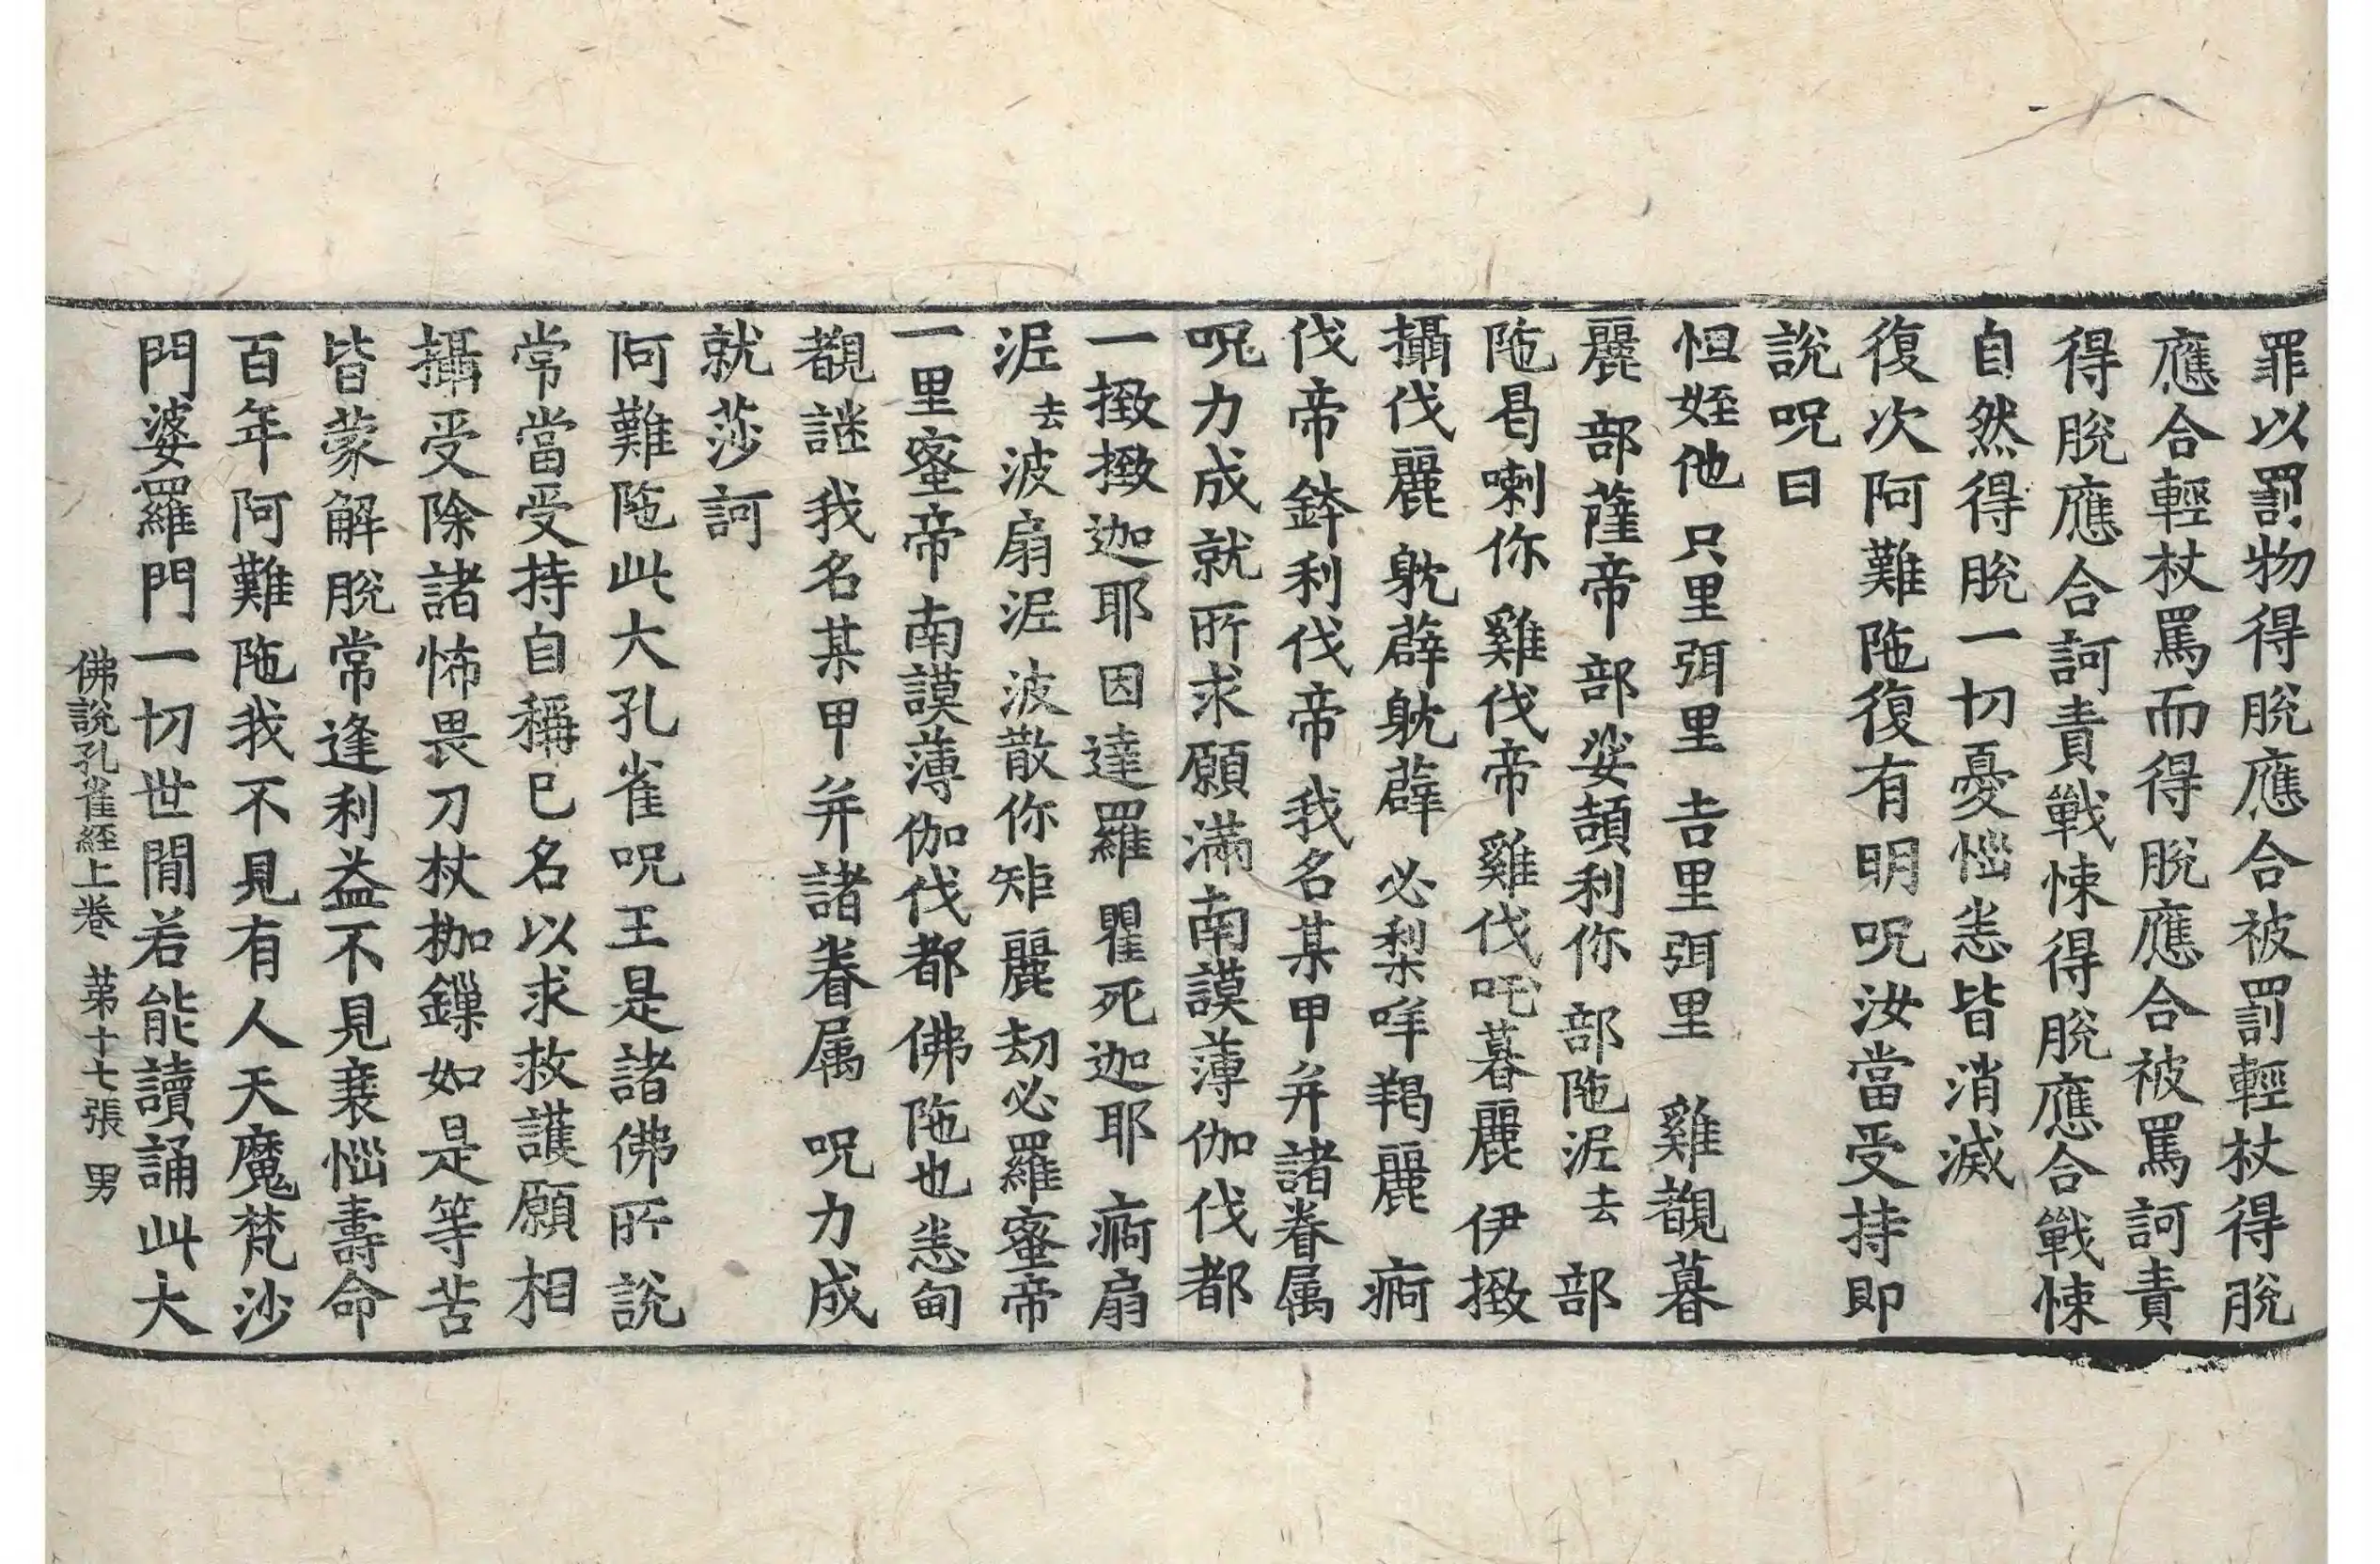 罪以罰物得脫應合被罰輕杖得脫
應合輕杖罵而得脫應合被罵訶責
得脫應合訶責戰悚得脫應合戰悚
自然得脫一切憂惱恙皆消滅
復次阿難陁復有明呪汝當受持即
說呪曰
怛姪他 只里弭里 吉里弭里 雞覩暮
麗 部薩帝 部娑頡利你 部陁泥去 部
陁曷喇你 雞伐帝雞伐吒暮麗 伊
攝伐麗 躭薜躭薜 必梨哶羯麗 痾
伐帝鉢利伐帝我名某甲并諸眷属
呪力成就所求願滿南謨薄伽伐都
一緻緻迦耶 因達羅 瞿死迦耶 痾扇
泥去波扇泥 波散你矩麗劫必羅蜜帝
一里蜜帝南謨薄伽伐都佛陁也悉甸
覩謎 我名某甲并諸眷属 呪力成
就莎訶
阿難陁此大孔雀呪王是諸佛所說
常當受持自稱已名以求救護願相
攝受除諸怖畏刀杖枷鏁如是等苦
皆蒙解脫常逢利益不見衰惱壽命
百年阿難陁我不見有人天魔梵沙
門婆羅門一切世閒若能讀誦此大
佛說孔雀經上卷 第十七張 男